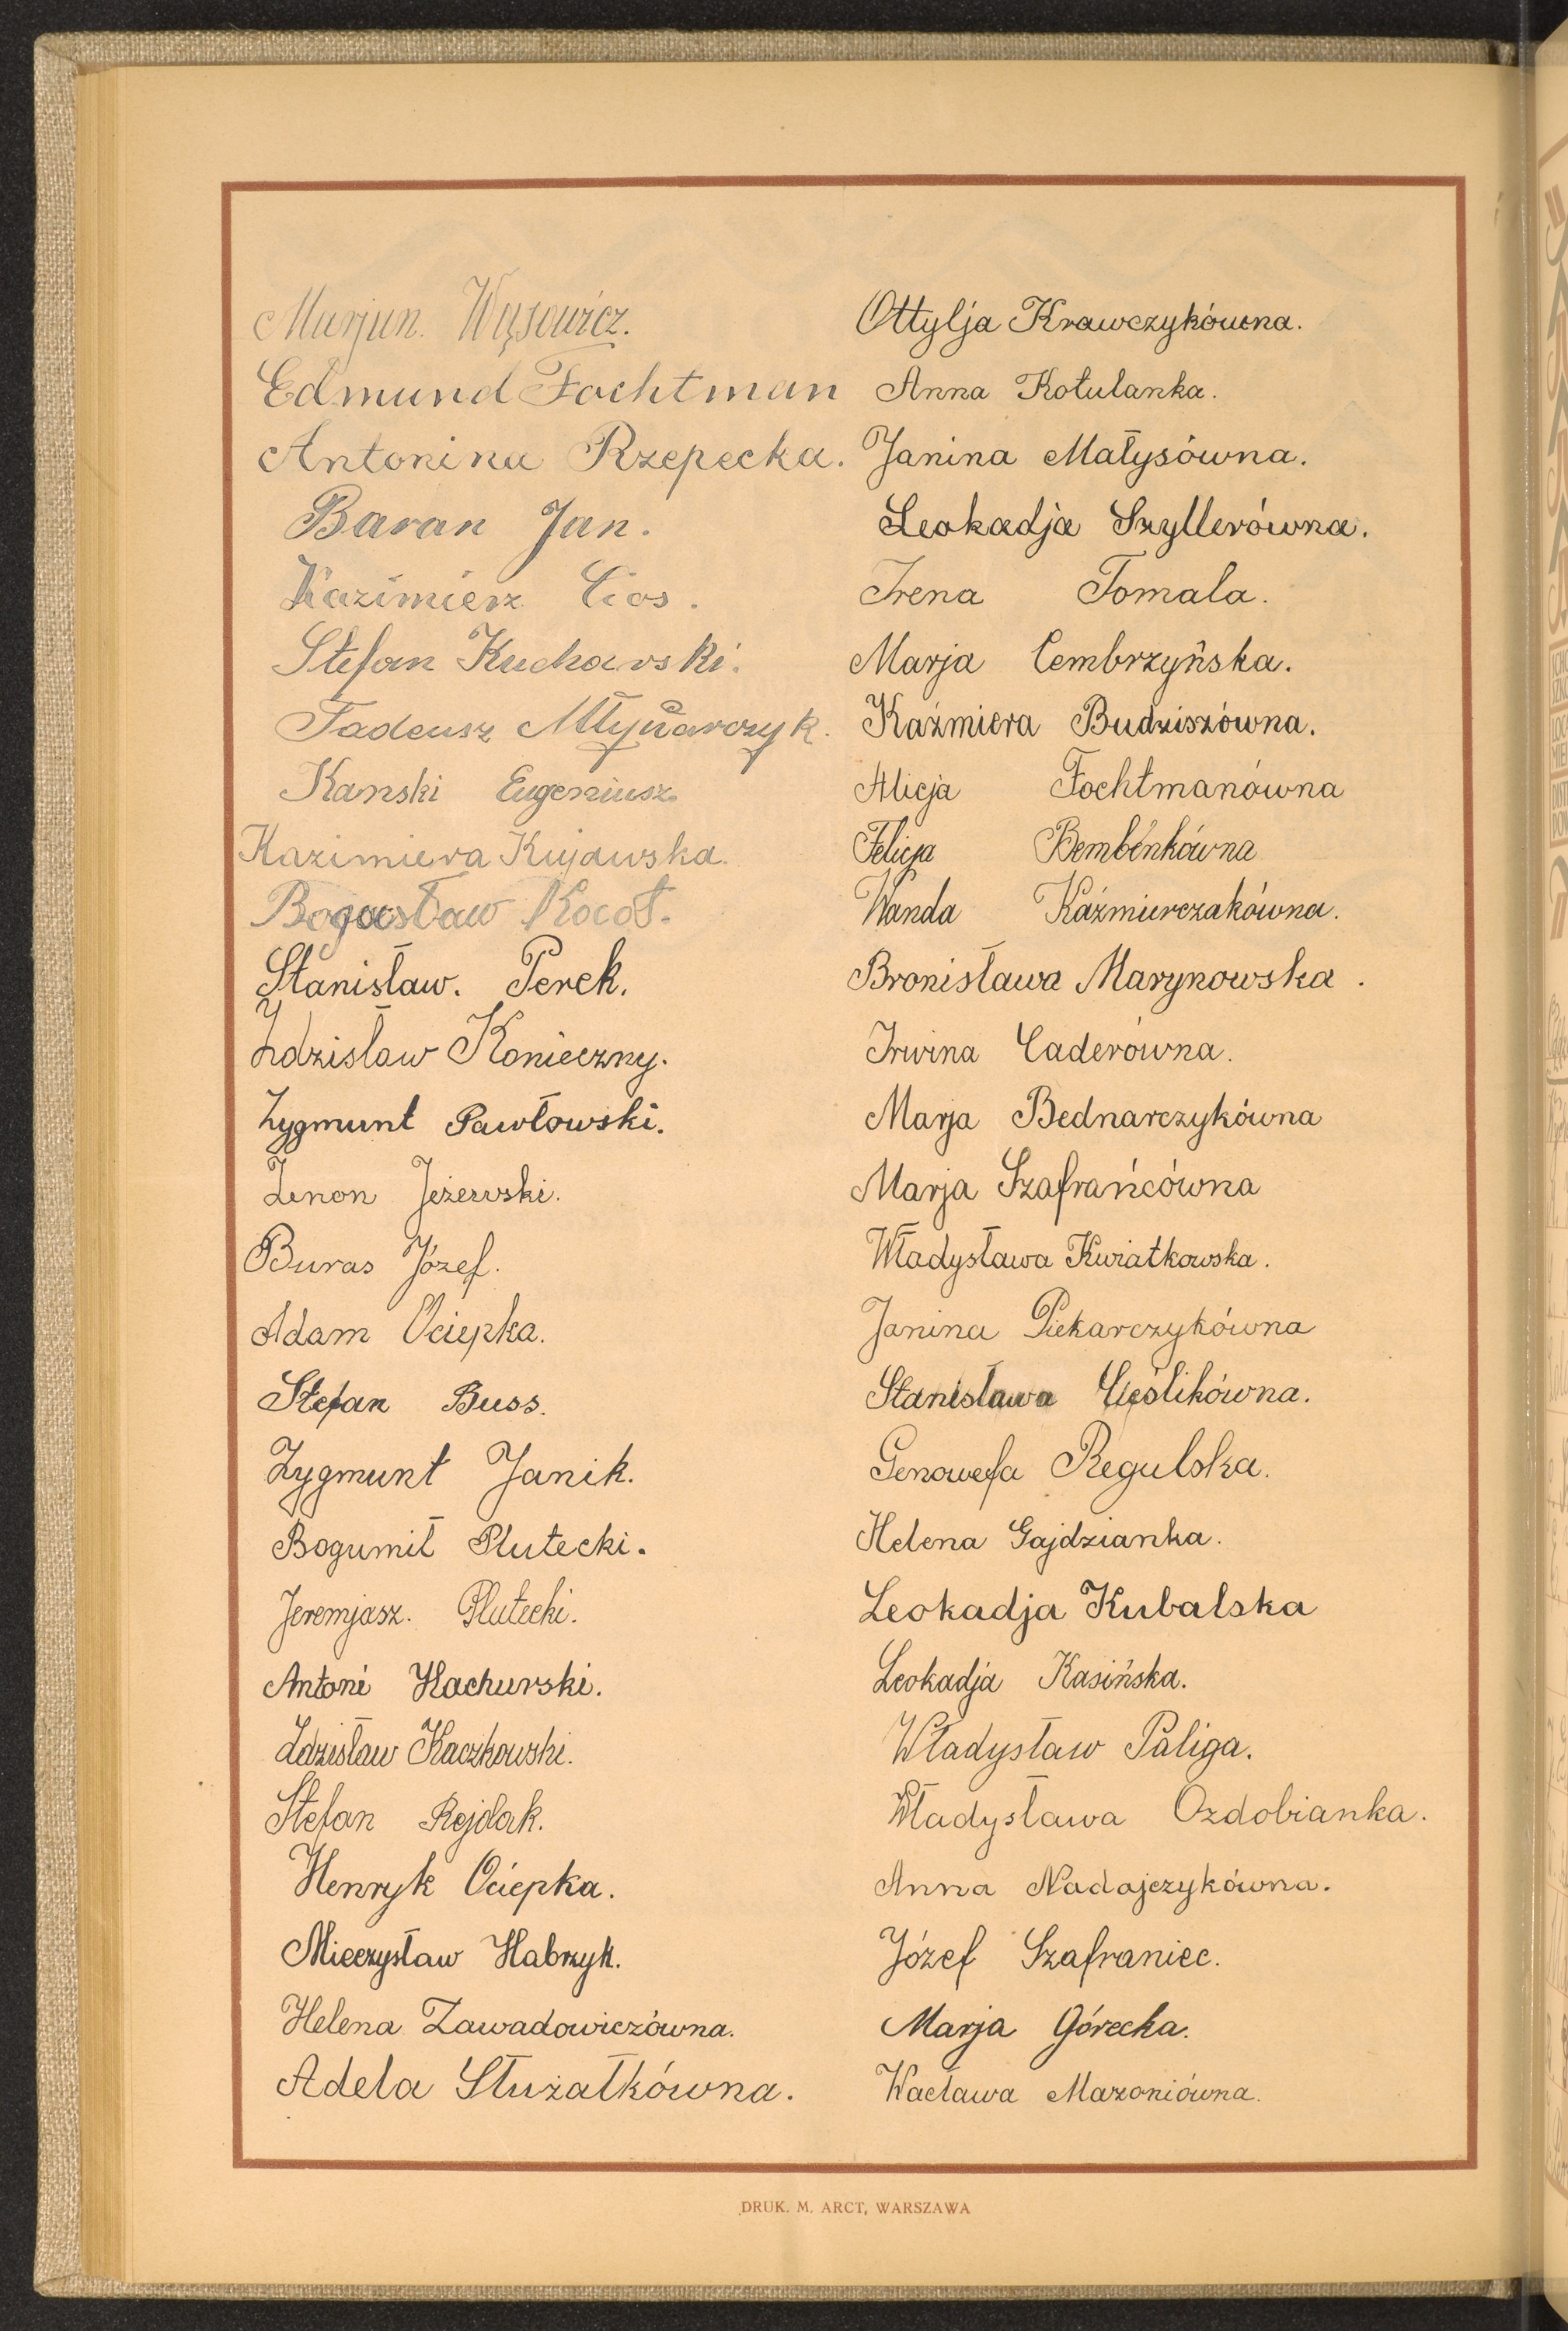 Marjan. Wąsowicz.
Edmund Fochtman
Antonina Rzepecka.
Baran Jan.
Kazimierz Cios.
Stefan Kucharski.
Tadeusz Młynarczyk.
Kanski Eugeniusz.
Kazimiera Kujawska.
Bogusław Kocoł.
Stanisław. Perek.
Zdzisław Konieczny.
Zygmunt Pawłowski.
Zenon Jeżewski.
Buras Józef.
Adam Ociepka.
Stefan Buss.
Zygmunt Janik.
Bogumił Plutecki.
Jeremjasz. Plutecki.
Antoni Kachurski.
Zdzisław Kaczkowski.
Stefan Rejdak.
Henryk Ociepka.
Mieczysław Habrzyk.
Helena Zawadowiczówna.
Adela Służałkówna.
Ottylja Krawczykówna.
Anna Kotulanka.
Janina Małysówna.
Leokadja Szyllerówna.
Irena Tomala.
Marja Cembrzyńska.
Kaźmiera Budziszówna.
Alicja Fochtmanówna
Felicja Bembénkówna
Wanda Kaźmierczakówna.
Bronisława Marynowska.
Irwina Caderówna.
Marja Bednarczykówna
Marja Szafrańcówna
Władysława Kwiatkowska.
Janina Piekarczykówna
Stanisława Cieślikówna.
Genowefa Regulska.
Helena Gajdzianka.
Leokadja Kubalska
Leokadja Kasińska.
Władysław Paliga.
Władysława Ozdobianka.
Anna Nadajczykówna.
Józef Szafraniec.
Marja Górecka.
Wacława Mazoniówna.
DRUK. M. ARCT, WARSZAWA